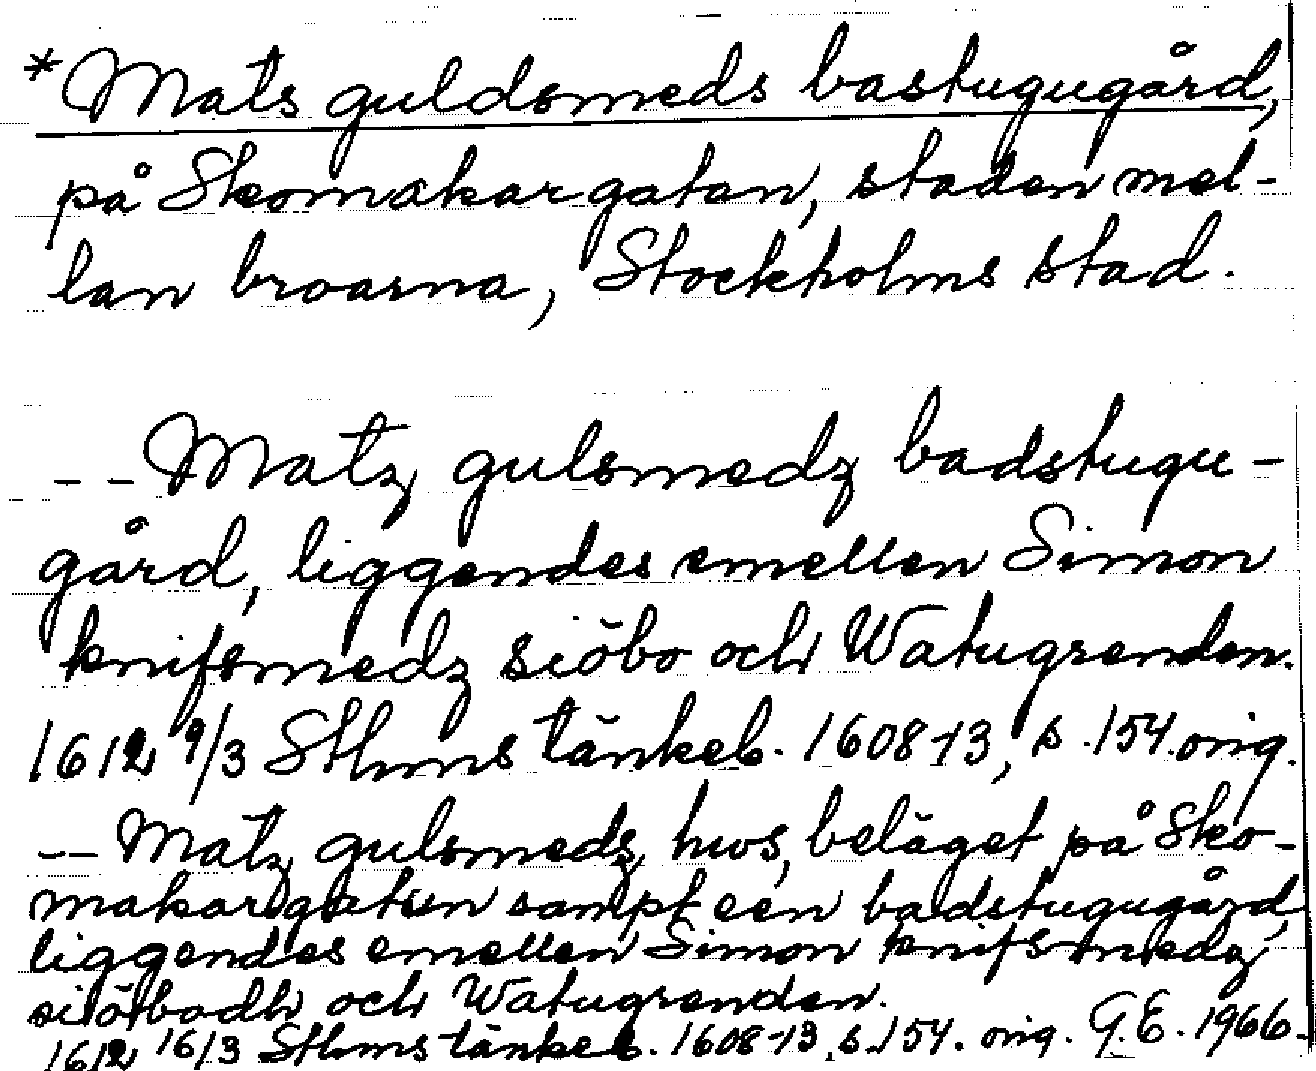 * Mats guldsmeds bastugugård,
på Skomakargatan, staden mel-
lan broarna, Stockholms stad.
-- Matz gulsmedz badstugu-
gård, liggendes emellen Simon
knifsmedz siöbo och Watugrenden.
1612 9/3 Sthms tänkeb. 1608-13, s. 154. orig.
-- Matz gulsmedz hws, beläget på Sko-
makargatun sampt een badstugugård,
liggendes emellen Simon knifsmedz
siöbodh och Watugrenden.
1612 16/3 Sthms tänkeb. 1608-13, s. 154. orig. G.E. 1966.